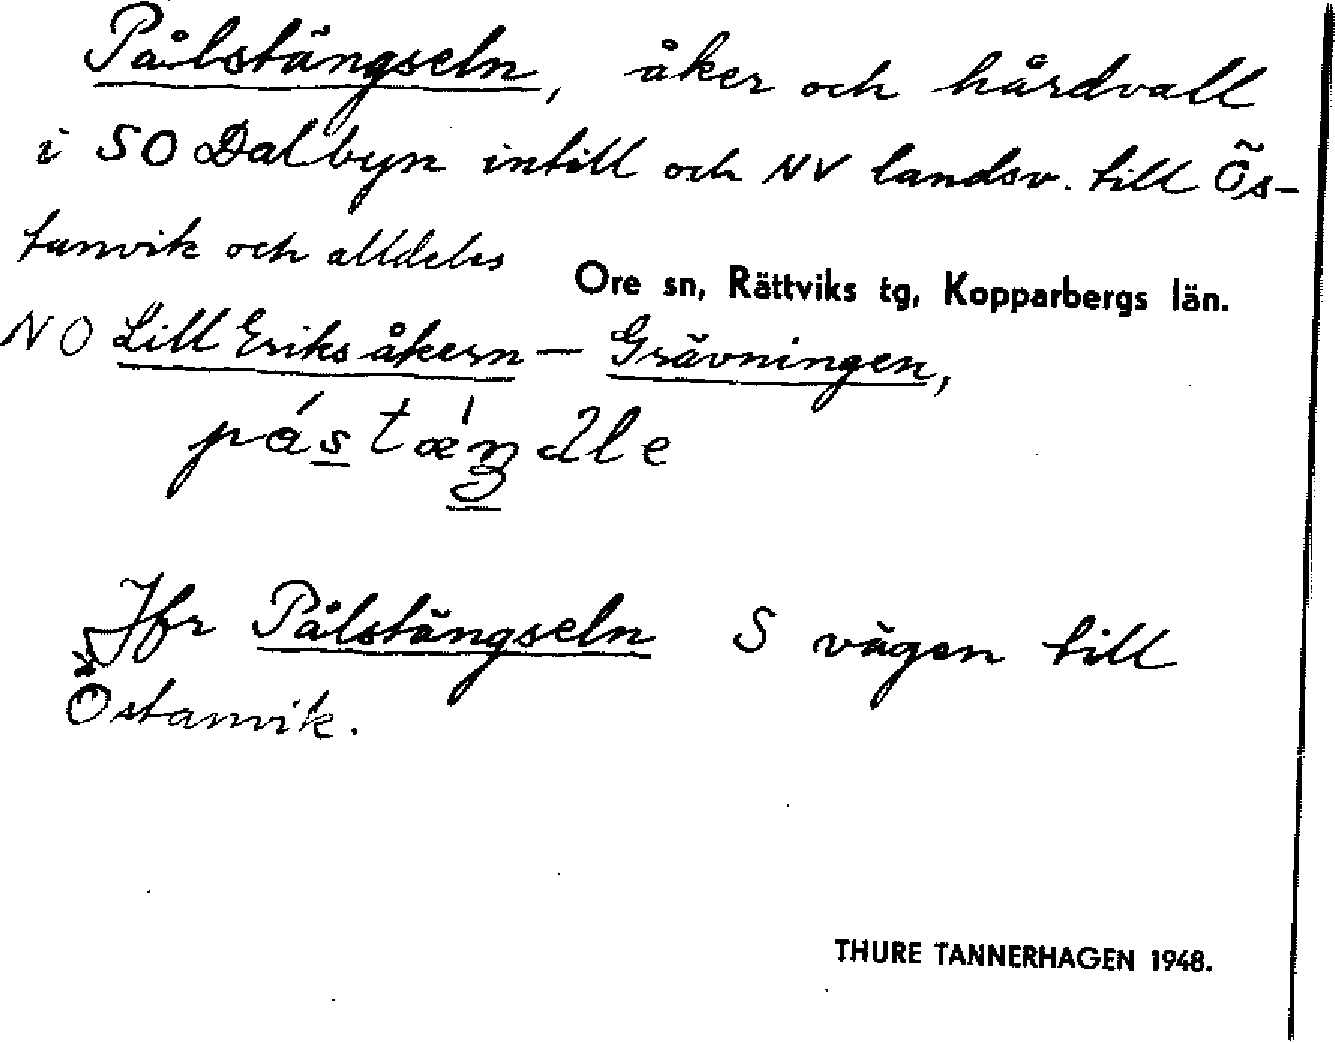 Pålstängseln, åker och hårdvall
i SO Dalbyn intill och NV landsv. till Ös-
tanvik och alldeles
Ore sn, Rättviks tg, Kopparbergs län.
NO Lill Eriks åkern — Grävningen,
Jfr Pålstängseln S vägen till
Östanvik.
THURE TANNERHAGEN 1948.